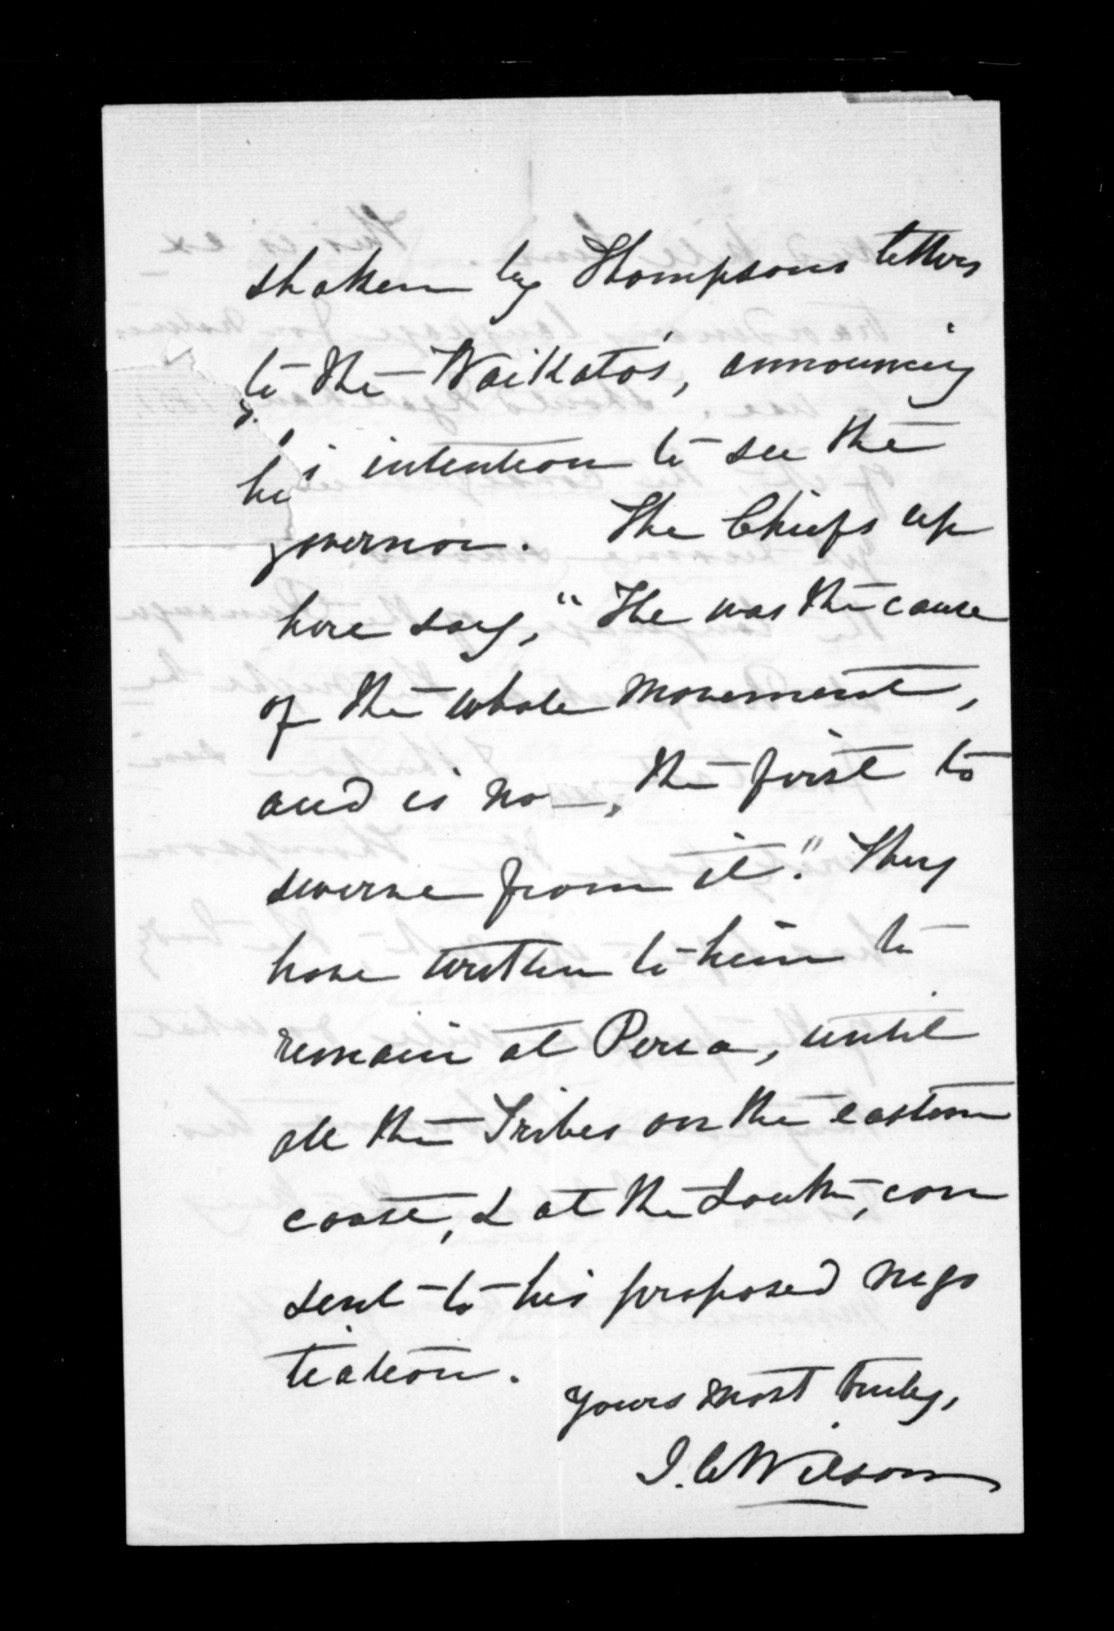 shaken by Thompsons letters
to the Waikato's, announcing
his intention to see the
governor. The Chiefs up
here say, "He was the cause
of the whole movement,
and is now, the first to
swerve from it." They
have written to him to
remain at Peria, until
all the Tribes on the eastern
coast, & at the South, con
sent to his proposed nego
tiation.
Yours most truly,
J. C Wilson